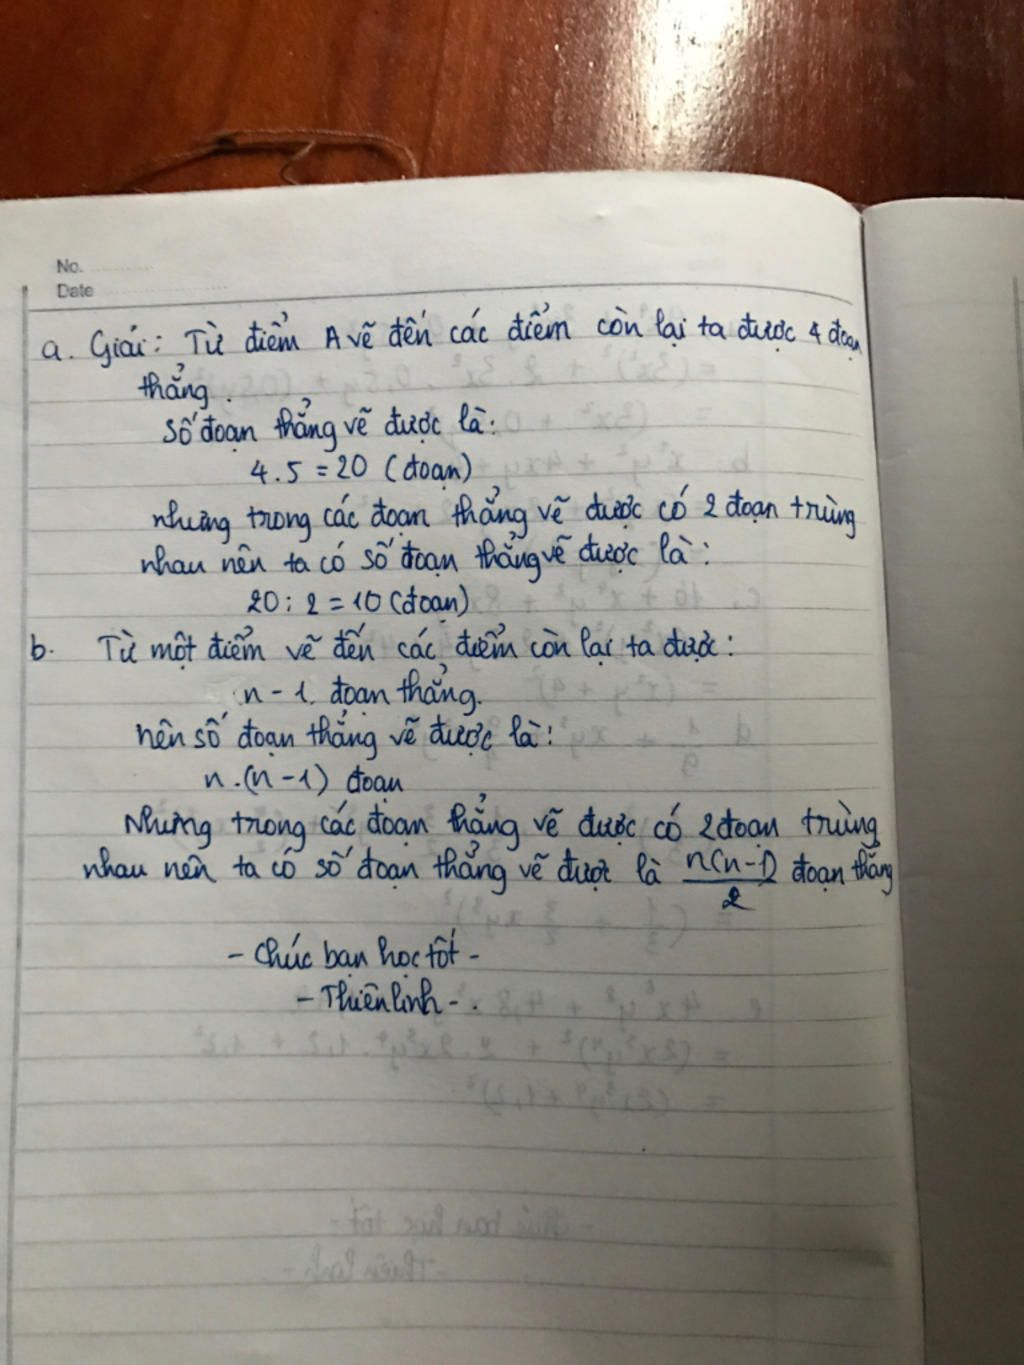 No.
Date
a. Giải: Từ điểm A vẽ đến các điểm còn lại ta được 4 đoạn
thẳng.
Số đoạn thẳng vẽ được là:
4.5 = 20 (đoạn)
nhưng trong các đoạn thẳng vẽ được có 2 đoạn trùng
nhau nên ta có số đoạn thẳng vẽ được là:
20 : 2 = 10 (đoạn)
b. Từ một điểm vẽ đến các điểm còn lại ta được:
n - 1 đoạn thẳng.
nên số đoạn thẳng vẽ được là:
n.(n - 1) đoạn
Nhưng trong các đoạn thẳng vẽ được có 2 đoạn trùng
nhau nên ta có số đoạn thẳng vẽ được là n(n-1)/2 đoạn thẳng
- Chúc bạn học tốt -
- Thiên linh - .